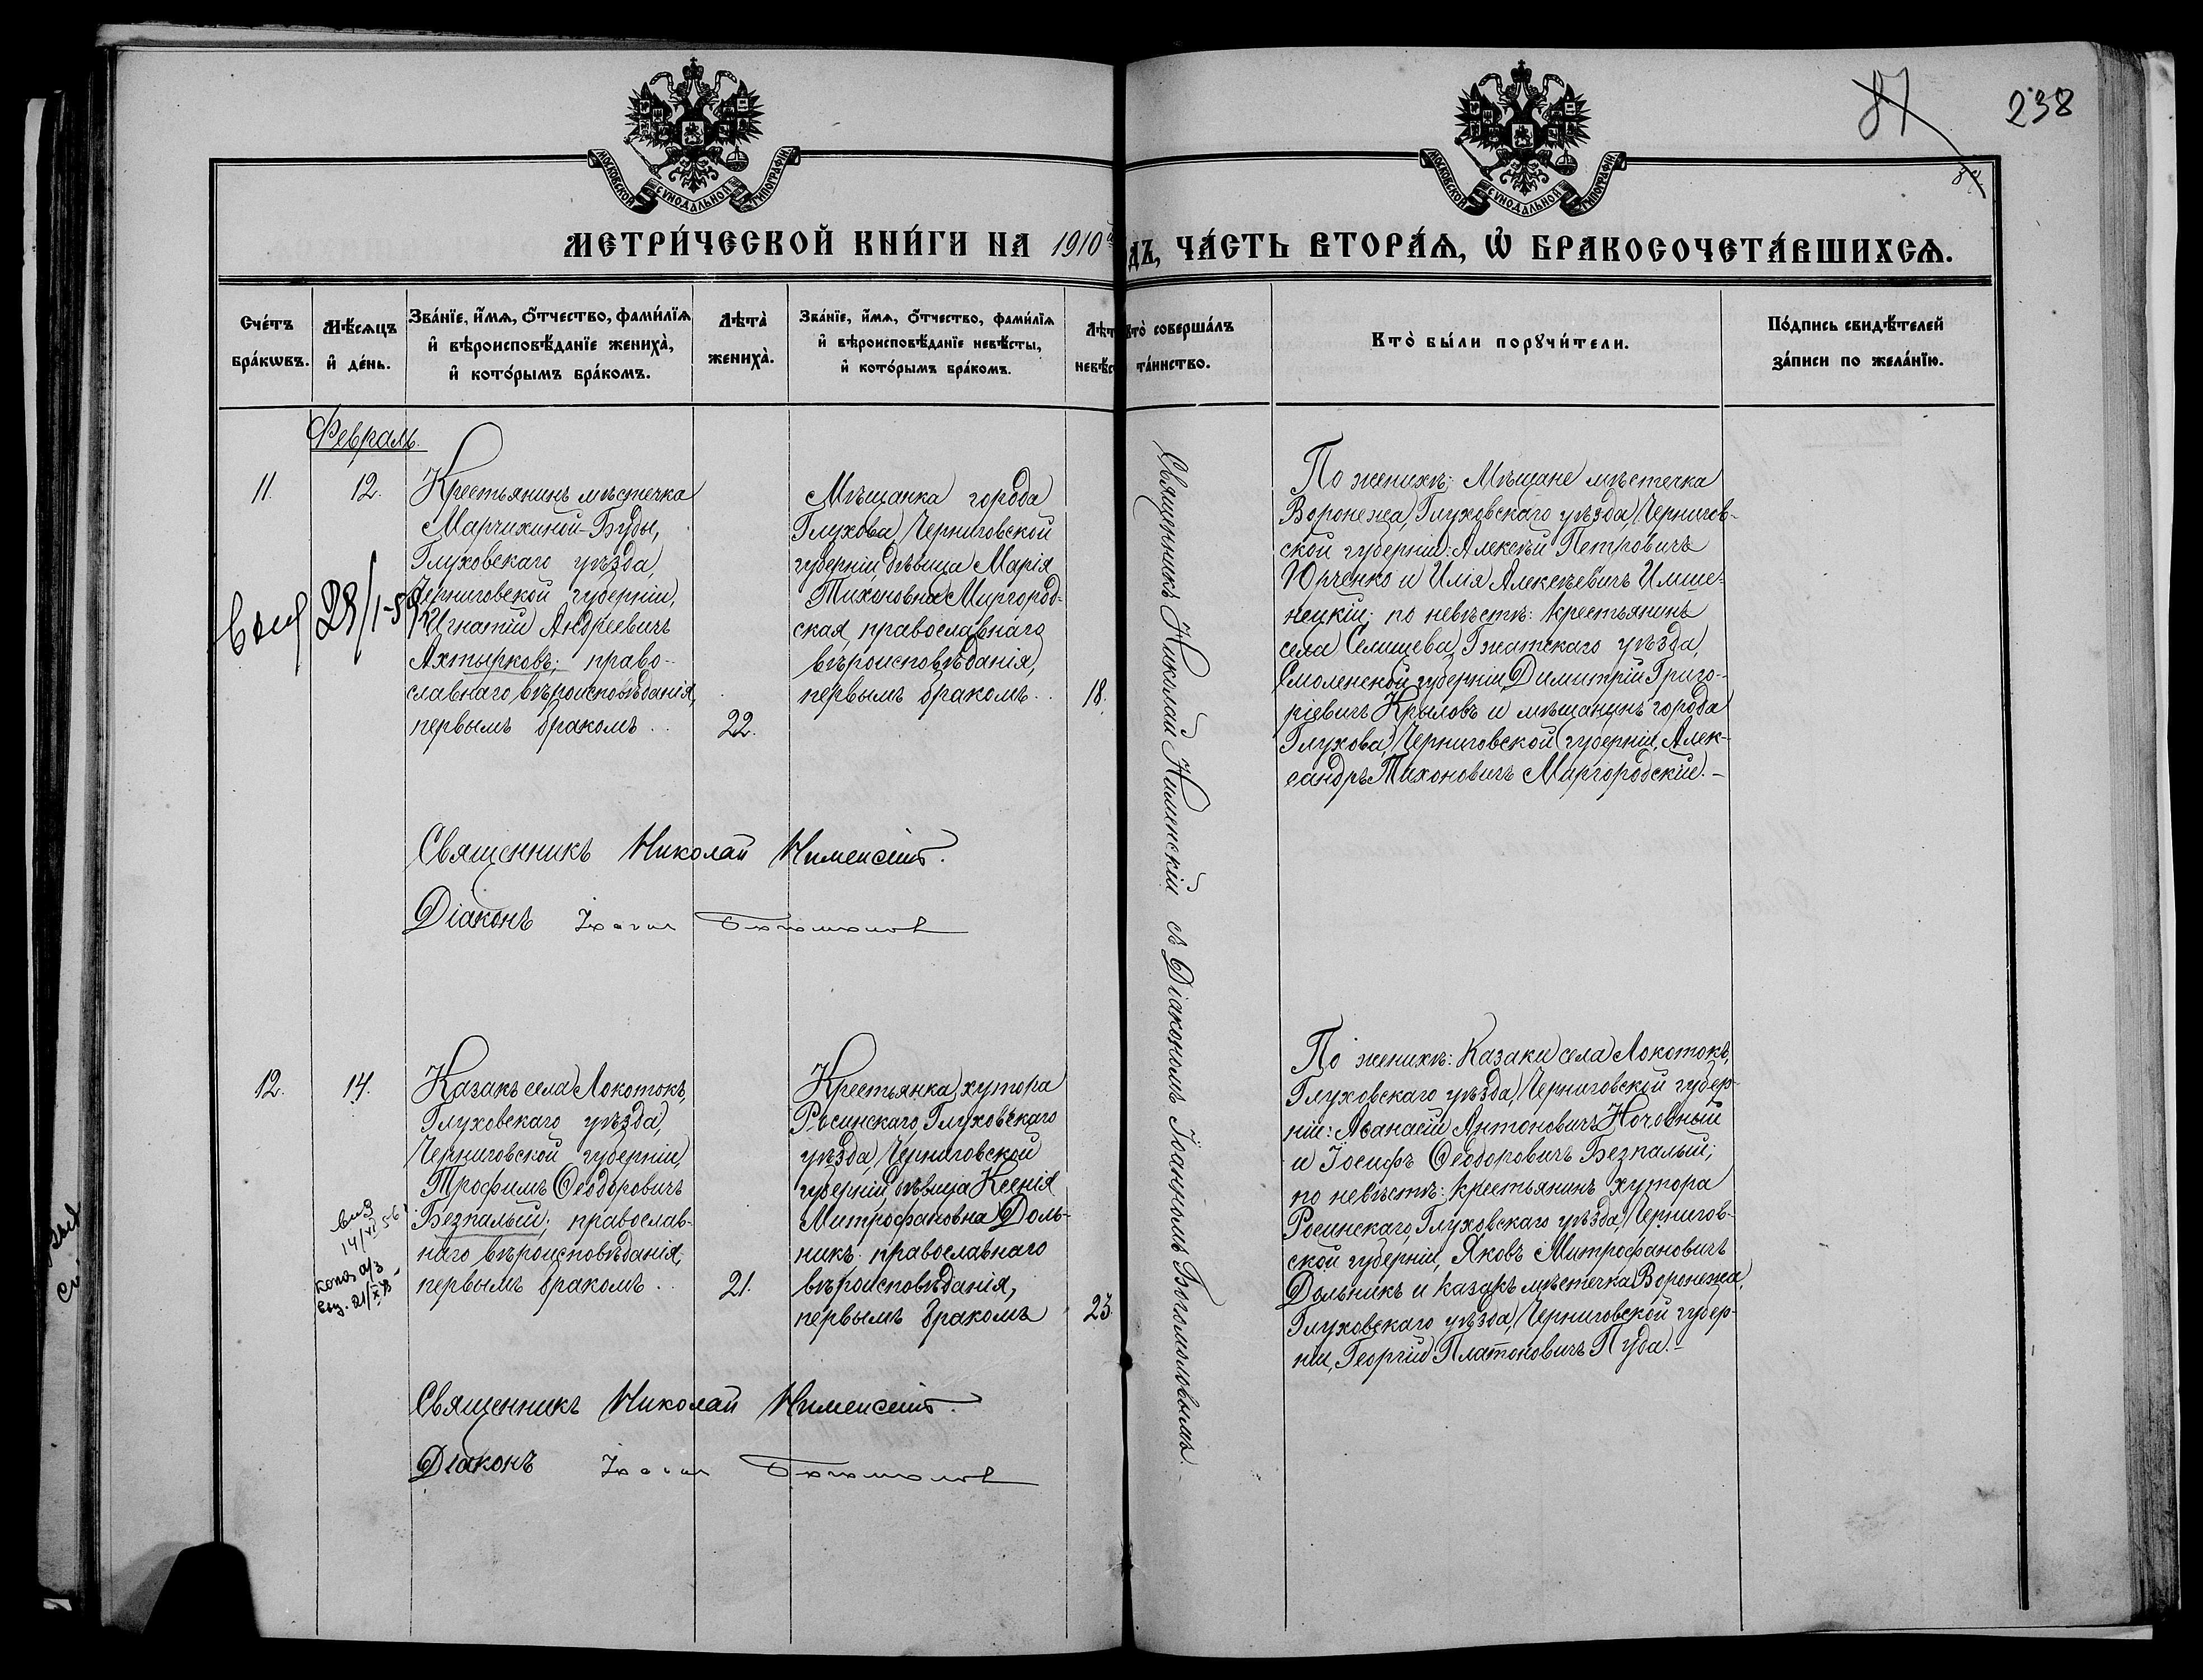 87
238
МОСКОВСКОЙ СѴНОДАЛЬНОЙ ТИПОГРАФІИ
МОСКОВСКОЙ СѴНОДАЛЬНОЙ ТИПОГРАФІИ
МЕТРИ́ЧЕСКОЙ КНИ́ГИ НА 1910й
ДЪ, ЧА́СТЬ ВТОРА́Ѧ, Ѽ БРАКОСОЧЕТА́ВШИХСѦ.
Сче́тъ
бра́кѡвъ.
Мѣ́сѧцъ
и҆ де́нь.
Зва́нїе, и҆́мѧ, ѻ҆́тчество, фами́лїѧ
и҆ вѣроисповѣ́данїе жениха̀,
и҆ кото́рымъ бра́комъ.
Лѣта̀
жениха̀.
Зва́нїе, и҆́мѧ, ѻ҆́тчество, фами́лїѧ
и҆ вѣроисповѣ́данїе невѣ́сты,
и҆ кото́рымъ бра́комъ.
Лѣт
невѣс
Кто̀ соверша́лъ
та́инство.
Кто̀ бы́ли порꙋчи́тели.
По́дпись свидѣ́телей
за́писи по жела́нїю.
Февраль.
11.
12.
Крестьянинъ мѣстечка
Марчихиной-Буды,
Глуховскаго уѣзда,
Черниговской губерніи,
Игнатій Андреевичъ
Ахтырковъ; право-
славнаго вѣроисповѣданія,
первымъ бракомъ.
22.
Мѣщанка города
Глухова, Черниговской
губерніи, дѣвица Марія
Тихоновна Миргород-
ская, православнаго
вѣроисповѣданія,
первымъ бракомъ.
18.
Священникъ Николай Нименскій съ Діакономъ Іоанномъ Богомоловымъ.
По женихѣ: Мѣщане мѣстечка
Воронежа, Глуховскаго уѣзда, Чернигов-
ской губерніи: Алексѣй Петровичъ
Юрченко и Илія Алексѣевичъ Имше-
нецкій; по невѣстѣ: крестьянинъ
села Селищева, Гжатскаго уѣзда,
Смоленской губерніи, Димитрій Григо-
ріевичъ Крыловъ и мѣщанинъ города
Глухова, Черниговской губерніи, Алек-
сандръ Тихоновичъ Миргородскій.-
Священникъ Николай Нименскій.
Діаконъ Іоаннъ Богомолов
12.
14.
Казакъ села Локотокъ,
Глуховскаго уѣзда,
Черниговской губерніи,
Трофимъ Ѳеодоровичъ
Безпалый; православ-
наго вѣроисповѣданія,
первымъ бракомъ.
21.
Крестьянка хутора
Росинскаго, Глуховскаго
уѣзда, Черниговской
губерніи, дѣвица Ксенія
Митрофановна Доль-
никъ православнаго
вѣроисповѣданія,
первымъ бракомъ
23
По женихѣ: Казаки села Локотокъ,
Глуховскаго уѣзда, Черниговской губер-
ніи: Аѳанасій Антоновичъ Ночовный
и Іосифъ Ѳеодоровичъ Безпалый;
по невѣстѣ: крестьянинъ хутора
Росинскаго, Глуховскаго уѣзда, Чернигов-
ской губерніи, Яковъ Митрофановичъ
Дольникъ и казакъ мѣстечка Воронежа,
Глуховскаго уѣзда, Черниговской губер-
ніи, Георгій Платоновичъ Пуда.-
Священникъ Николай Нименскій.
Діаконъ Іоаннъ Богомолов